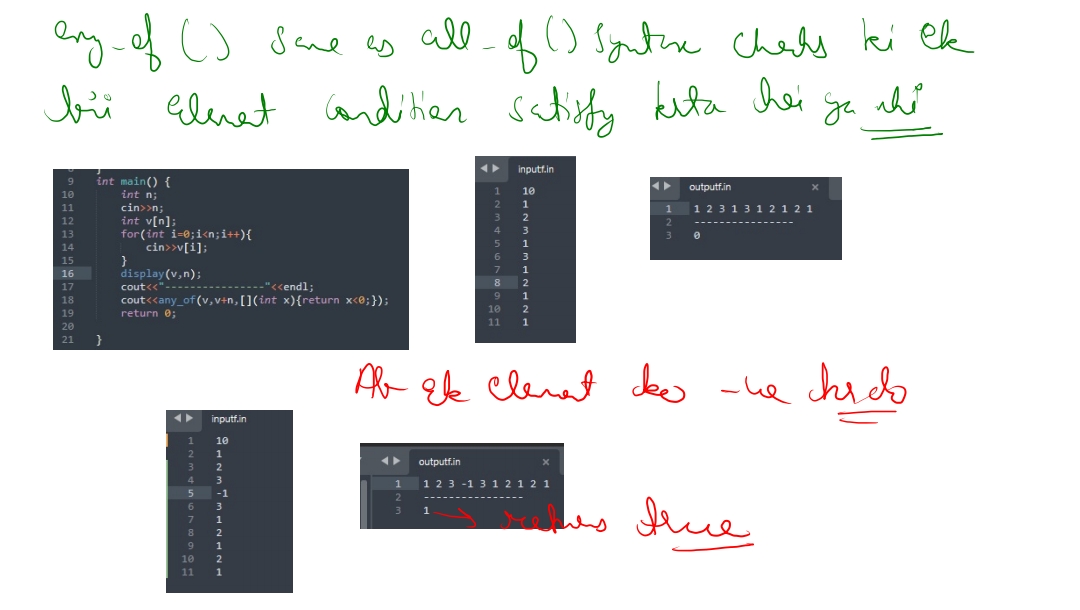 any_of () same as all_of () syntax checks ki ek
bii element condition satisfy krta hei ya nhi
9 int main() {
10 int n;
11 cin>>n;
12 int v[n];
13 for(int i=0;i<n;i++){
14 cin>>v[i];
15 }
16 display(v,n);
17 cout<<"----------------"<<endl;
18 cout<<any_of(v,v+n,[](int x){return x<0;});
19 return 0;
20
21 }
inputf.in
1 10
2 1
3 2
4 3
5 1
6 3
7 1
8 2
9 1
10 2
11 1
outputf.in ×
1 1 2 3 1 3 1 2 1 2 1
2 ----------------
3 0
Ab ek element ko -ve krdo
inputf.in
1 10
2 1
3 2
4 3
5 -1
6 3
7 1
8 2
9 1
10 2
11 1
outputf.in ×
1 1 2 3 -1 3 1 2 1 2 1
2 ----------------
3 1 → returns true